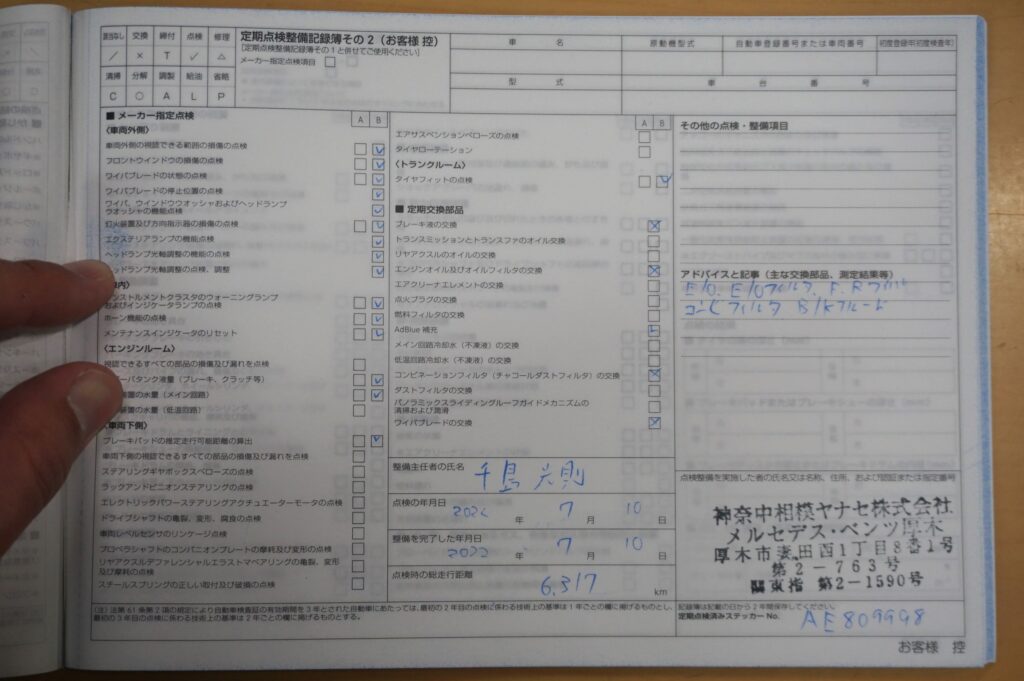 該当なし 交換 締付 点検 修理
／ × T ✓ △
清掃 分解 調製 給油 省略
C ○ A L P
定期点検整備記録簿その2（お客様 控）
[定期点検整備記録簿その1と併せてご使用ください]
メーカー指定点検項目
車名 原動機型式 自動車登録番号または車両番号 初度登録年(初度検査年)
型式 車台番号
■ メーカー指定点検
A B
〈車両外側〉
車両外側の視認できる範囲の損傷の点検
フロントウインドウの損傷の点検
ワイパブレードの状態の点検
ワイパブレードの停止位置の点検
ワイパ、ウインドウウオッシャおよびヘッドランプ
ウオッシャの機能点検
灯火装置及び方向指示器の損傷の点検
エクステリアランプの機能点検
ヘッドランプ光軸調整の機能の点検
ヘッドランプ光軸調整の点検、調整
内〉
ンストルメントクラスタのウォーニングランプ
およびインジケータランプの点検
ホーン機能の点検
メンテナンスインジケータのリセット
〈エンジンルーム〉
視認できるすべての部品の損傷及び漏れを点検
ーバタンク液量（ブレーキ、クラッチ等）
装置の水量（メイン回路）
装置の水量（低温回路）
〈車両下側〉
ブレーキパッドの推定走行可能距離の算出
車両下側の視認できるすべての部品の損傷及び漏れを点検
ステアリングギヤボックスベローズの点検
ラックアンドピニオンステアリングの点検
エレクトリックパワーステアリングアクチュエーターモータの点検
ドライブシャフトの亀裂、変形、腐食の点検
車両レベルセンサのリンケージ点検
プロペラシャフトのコンパニオンプレートの摩耗及び変形の点検
リヤアクスルデファレンシャルエラストマベアリングの亀裂、変形
及び摩耗の点検
スチールスプリングの正しい取付及び破損の点検
A B
エアサスペンションベローズの点検
タイヤローテーション
〈トランクルーム〉
タイヤフィットの点検
■ 定期交換部品
ブレーキ液の交換
トランスミッションとトランスファのオイル交換
リヤアクスルのオイルの交換
エンジンオイル及びオイルフィルタの交換
エアクリーナエレメントの交換
点火プラグの交換
燃料フィルタの交換
AdBlue 補充
メイン回路冷却水（不凍液）の交換
低温回路冷却水（不凍液）の交換
コンビネーションフィルタ（チャコールダストフィルタ）の交換
ダストフィルタの交換
パノラミックスライディングルーフガイドメカニズムの
清掃および潤滑
ワイパブレードの交換
整備主任者の氏名
千島 光則
点検の年月日
2022 年 7 月 10 日
整備を完了した年月日
2022 年 7 月 10 日
点検時の総走行距離
6,317 km
その他の点検・整備項目
アドバイスと記事（主な交換部品、測定結果等）
E/O、E/Oフィルタ、F.R
コンビフィルタ B/kフルード
点検整備を実施した者の氏名又は名称、住所、および認証または指定番号
神奈中相模ヤナセ株式会社
メルセデス・ベンツ厚木
厚木市妻田西1丁目8番1号
第2－763号
関東指 第2－1590号
(注) 法第61条第2項の規定により自動車検査証の有効期間を3年とされた自動車にあたっては、最初の2年目の点検に係わる技術上の基準は1年ごとの欄に掲げるものとし、
最初の3年目の点検に係わる技術上の基準は2年ごとの欄に掲げるものとする。
記録簿は記載の日から2年間保存してください。
定期点検済みステッカーNo. AE809998
お客様 控